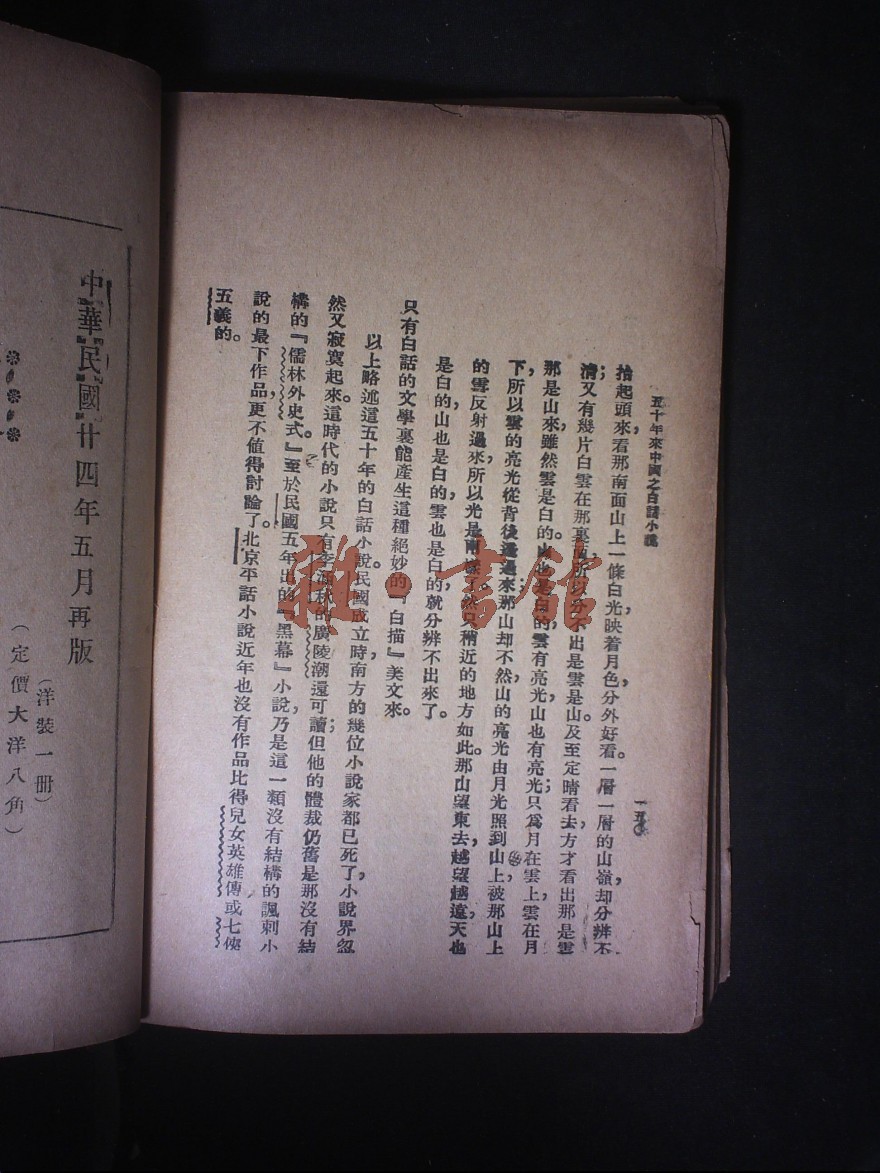 五十年來中國之白話小說
一五〇
抬起頭來看那南面山上一條白光，映着月色，分外好看。一層一層的山嶺，却分辨不
清；又有幾片白雲在那裏面，所以分不出是雲是山。及至定睛看去，方才看出那是雲
那是山來。雖然雲是白的，山也是白的，雲有亮光，山也有亮光；只爲月在雲上，雲在月
下，所以雲的亮光從背後透過來。那山却不然，山的亮光由月光照到山上，被那山上
的雪反射過來，所以光是兩樣了。然只稍近的地方如此。那山望東去，越望越遠，天也
是白的，山也是白的，雲也是白的，就分辨不出來了。
只有白話的文學裏能產生這種絕妙的『白描』美文來。
以上略述這五十年的白話小說。民國成立時，南方的幾位小說家都已死了，小說界忽
然又寂寞起來。這時代的小說只有李涵秋的廣陵潮還可讀；但他的體裁仍舊是那沒有結
構的『儒林外史式』。至於民國五年出的『黑幕』小說，乃是這一類沒有結構的諷刺小
說的最下作品，更不值得討論了。北京平話小說近年也沒有作品比得兒女英雄傳或七俠
五義的。
中華民國廿四年五月再版
（洋裝一册）
（定價大洋八角）
雜·書館